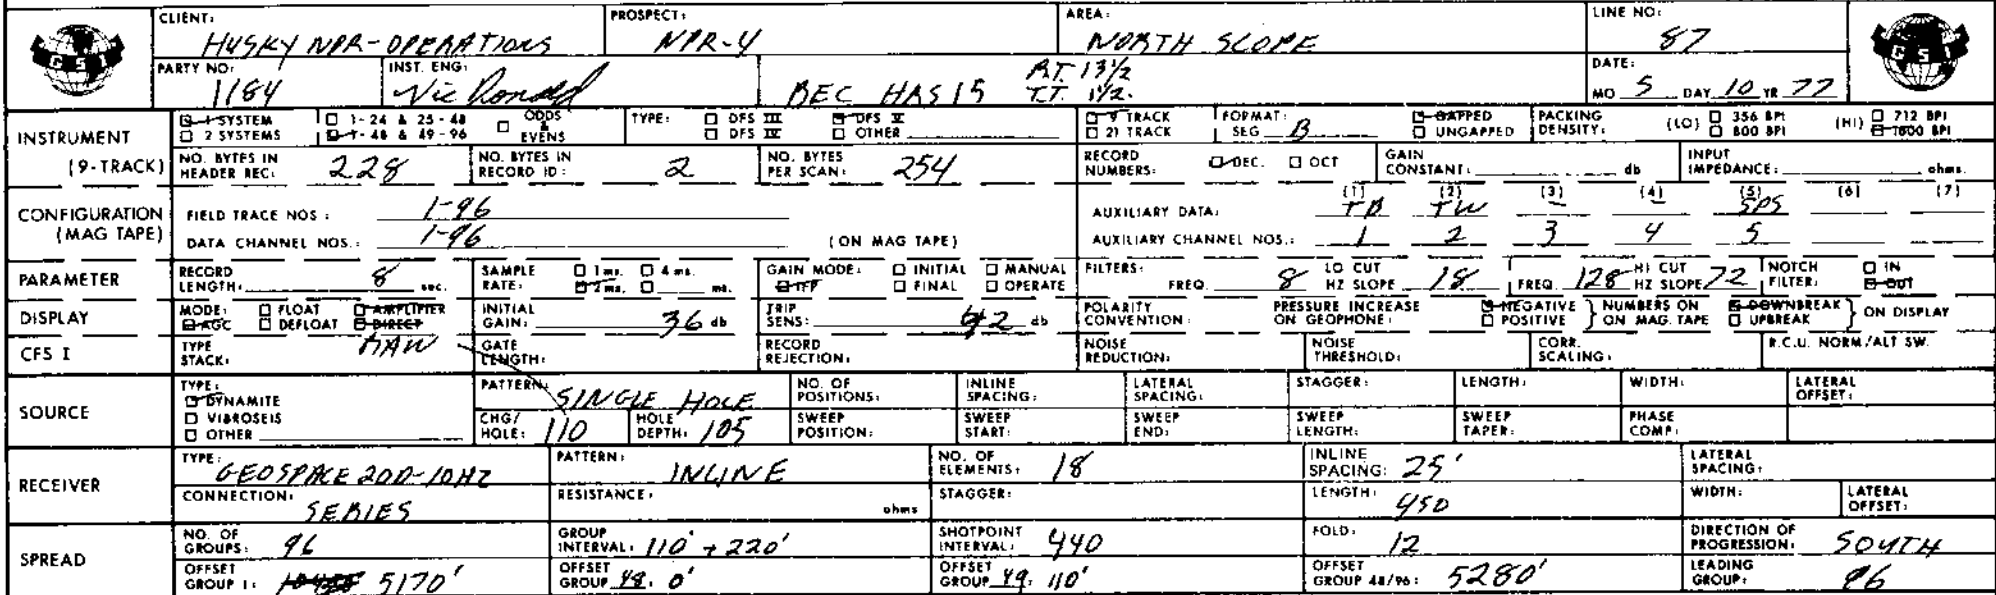 CLIENT: HUSKY NPR-OPERATIONS PROSPECT: NPR-4 AREA: NORTH SLOPE LINE NO: 87
GSI
PARTY NO: 1184 INST. ENG: Vic Ronald REC HAS 15 R.T. 13 1/2 T.T. 1 1/2. DATE: MO 5 DAY 10 YR 77
GSI
INSTRUMENT (9-TRACK)
1 SYSTEM 1-24 & 25-48 ODDS & EVENS TYPE: DFS III DFS V 9 TRACK FORMAT: SEG B GAPPED PACKING DENSITY: (LO) 356 BPI (HI) 712 BPI
2 SYSTEMS 1-48 & 49-96 DFS IV OTHER 21 TRACK UNGAPPED 800 BPI 1600 BPI
NO. BYTES IN HEADER REC: 228 NO. BYTES IN RECORD ID: 2 NO. BYTES PER SCAN: 254 RECORD NUMBERS: DEC. OCT GAIN CONSTANT: db INPUT IMPEDANCE: ohms.
CONFIGURATION (MAG TAPE)
(1) (2) (3) (4) (5) (6) (7)
FIELD TRACE NOS: 1-96 AUXILIARY DATA: TB TW - - SPS
DATA CHANNEL NOS.: 1-96 (ON MAG TAPE) AUXILIARY CHANNEL NOS.: 1 2 3 4 5
PARAMETER RECORD LENGTH: 8 sec. SAMPLE RATE: 1 ms. 4 ms. 2 ms. ms. GAIN MODE: INITIAL MANUAL IFP FINAL OPERATE FILTERS: FREQ. 8 LO CUT HZ SLOPE 18 FREQ. 128 HI CUT HZ SLOPE 72 NOTCH FILTER: IN OUT
DISPLAY MODE: FLOAT AMPLIFIER AGC DEFLOAT DIRECT INITIAL GAIN: 36 db TRIP SENS: 42 db POLARITY CONVENTION: PRESSURE INCREASE ON GEOPHONE: NEGATIVE POSITIVE NUMBERS ON ON MAG. TAPE DOWNBREAK UPBREAK ON DISPLAY
CFS I TYPE STACK: GATE LENGTH: RECORD REJECTION: NOISE REDUCTION: NOISE THRESHOLD: CORR. SCALING: R.C.U. NORM/ALT SW.
SOURCE
TYPE: DYNAMITE VIBROSEIS OTHER PATTERN: SINGLE HOLE NO. OF POSITIONS: INLINE SPACING: LATERAL SPACING: STAGGER: LENGTH: WIDTH: LATERAL OFFSET:
CHG/HOLE: 110 HOLE DEPTH: 105 SWEEP POSITION: SWEEP START: SWEEP END: SWEEP LENGTH: SWEEP TAPER: PHASE COMP:
RECEIVER
TYPE: GEOSPACE 20D-10HZ PATTERN: INLINE NO. OF ELEMENTS: 18 INLINE SPACING: 25' LATERAL SPACING:
CONNECTION: SERIES RESISTANCE: ohms STAGGER: LENGTH: 450 WIDTH: LATERAL OFFSET:
SPREAD
NO. OF GROUPS: 96 GROUP INTERVAL: 110' + 220' SHOTPOINT INTERVAL: 440 FOLD: 12 DIRECTION OF PROGRESSION: SOUTH
OFFSET GROUP 1: 5170' OFFSET GROUP 48: 0' OFFSET GROUP 49: 110' OFFSET GROUP 48/96: 5280' LEADING GROUP: 96